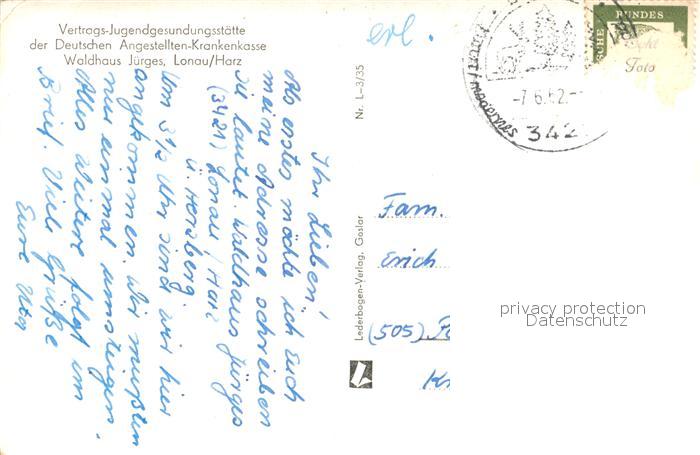 Vertrags-Jugendgesundungsstätte
der Deutschen Angestellten-Krankenkasse
Waldhaus Jürges, Lonau/Harz
erl.
BUNDES
Foto
-7.6.62.-
342
modernes
Ihr Lieben!
Als erstes möchte ich Euch
meine Adresse schreiben
sie lautet: Waldhaus Jürges
(3421) Lonau / Harz
ü. Herzberg
Um 3½ Uhr sind wir hier
angekommen. Wir mußten
nur einmal umsteigen.
Alles Weitere folgt im
Brief. Viele Grüße
Eure Uta
Nr. L-3/35
Lederbogen-Verlag, Goslar
Fam.
Erich
(505)
privacy protection
Datenschutz